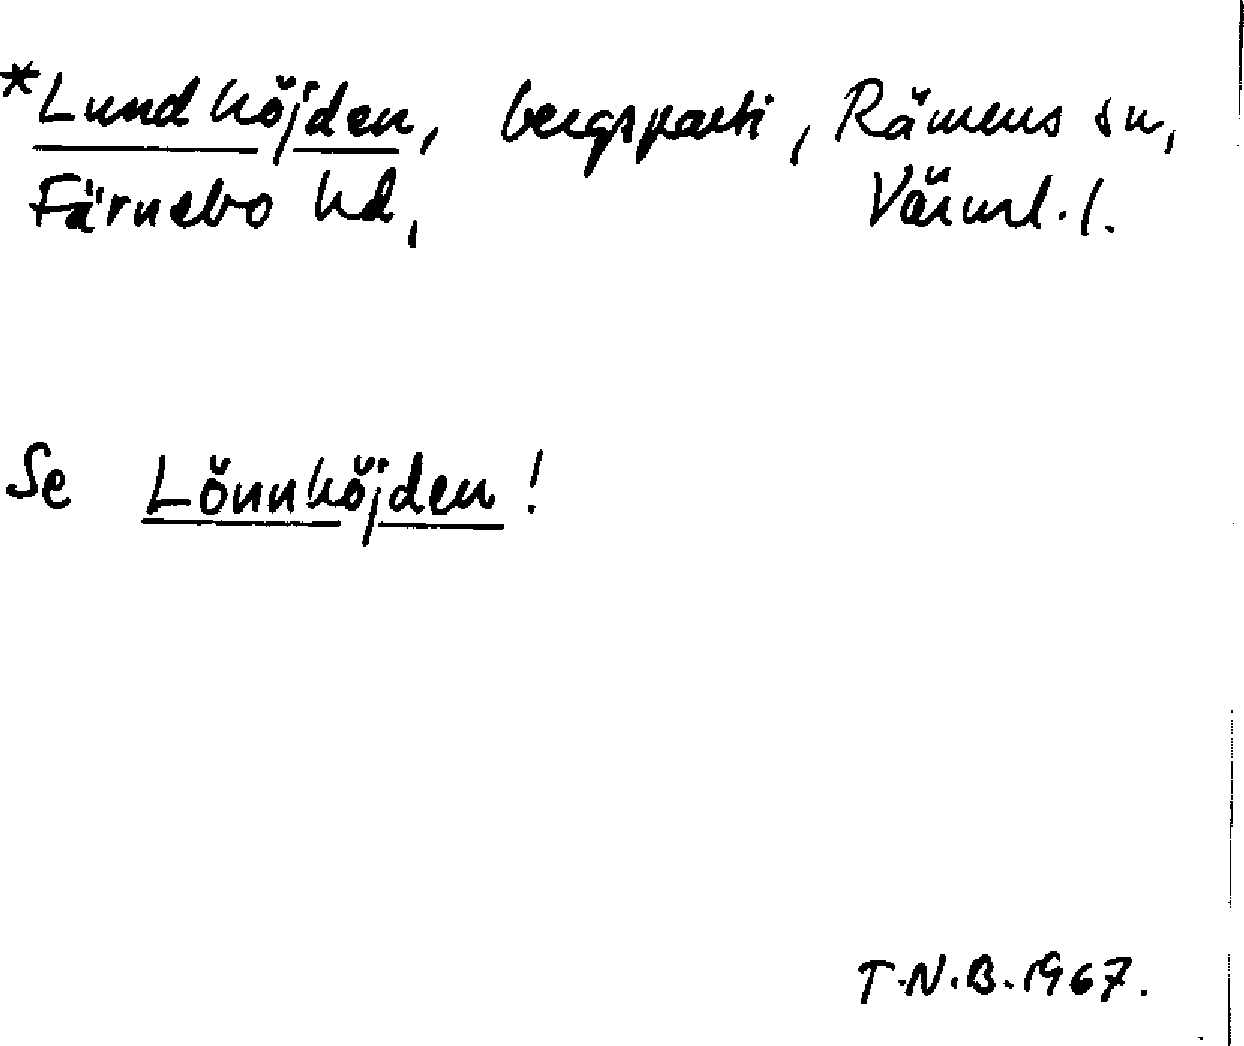 *Lundhöjden, bergsparti, Rämens sn,
Färnebo hd, Värml. l.
Se Lönnhöjden!
T.N.B. 1967.